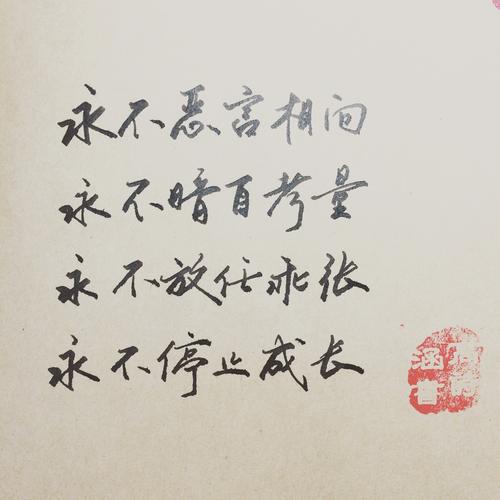 永不恶言相向
永不暗自考量
永不放任乖张
永不停止成长